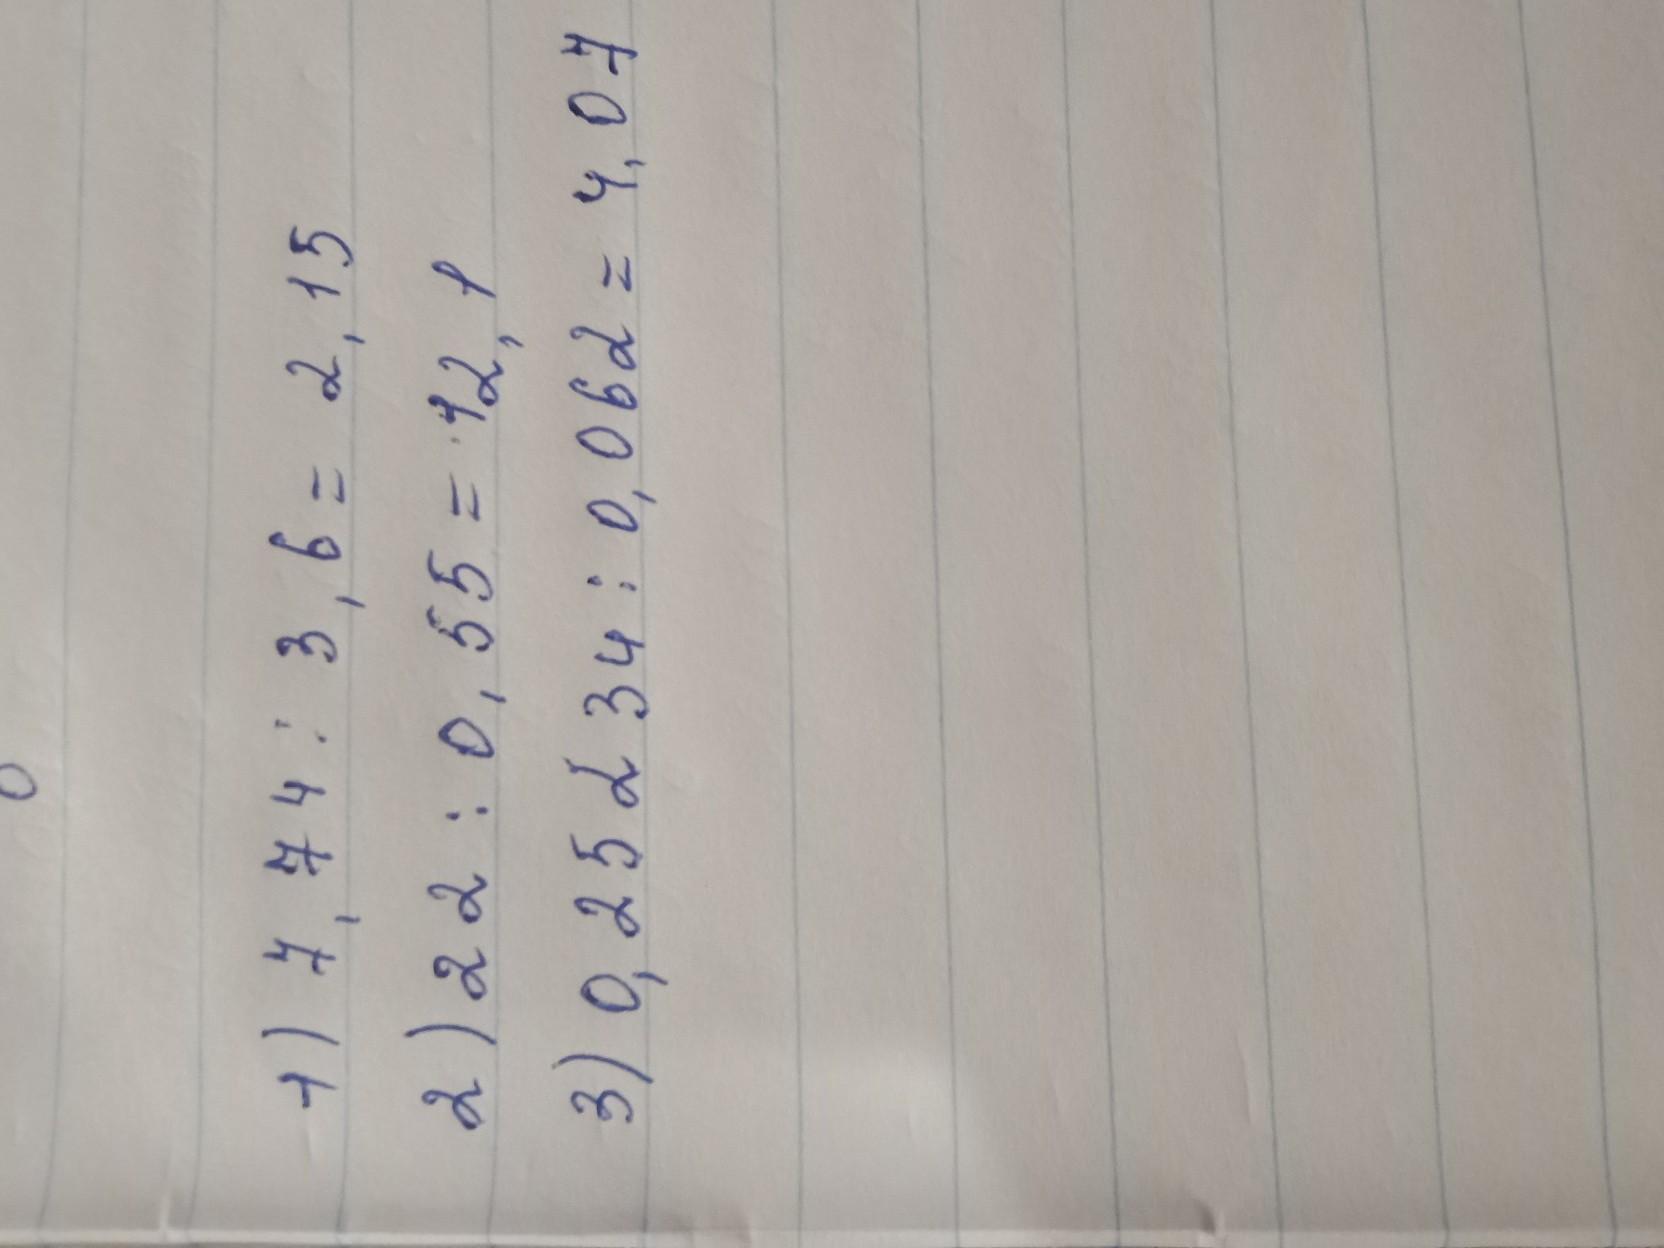 1) 7,74 : 3,6 = 2,15
2) 22 : 0,55 = 12,1
3) 0,25234 : 0,062 = 4,07